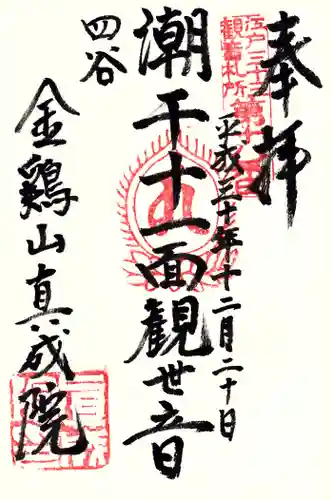 奉拝
江戸三十三
観音札所
第十八番
平成三十年十二月二十日
潮干十一面観世音
四谷
金鶏山真成院